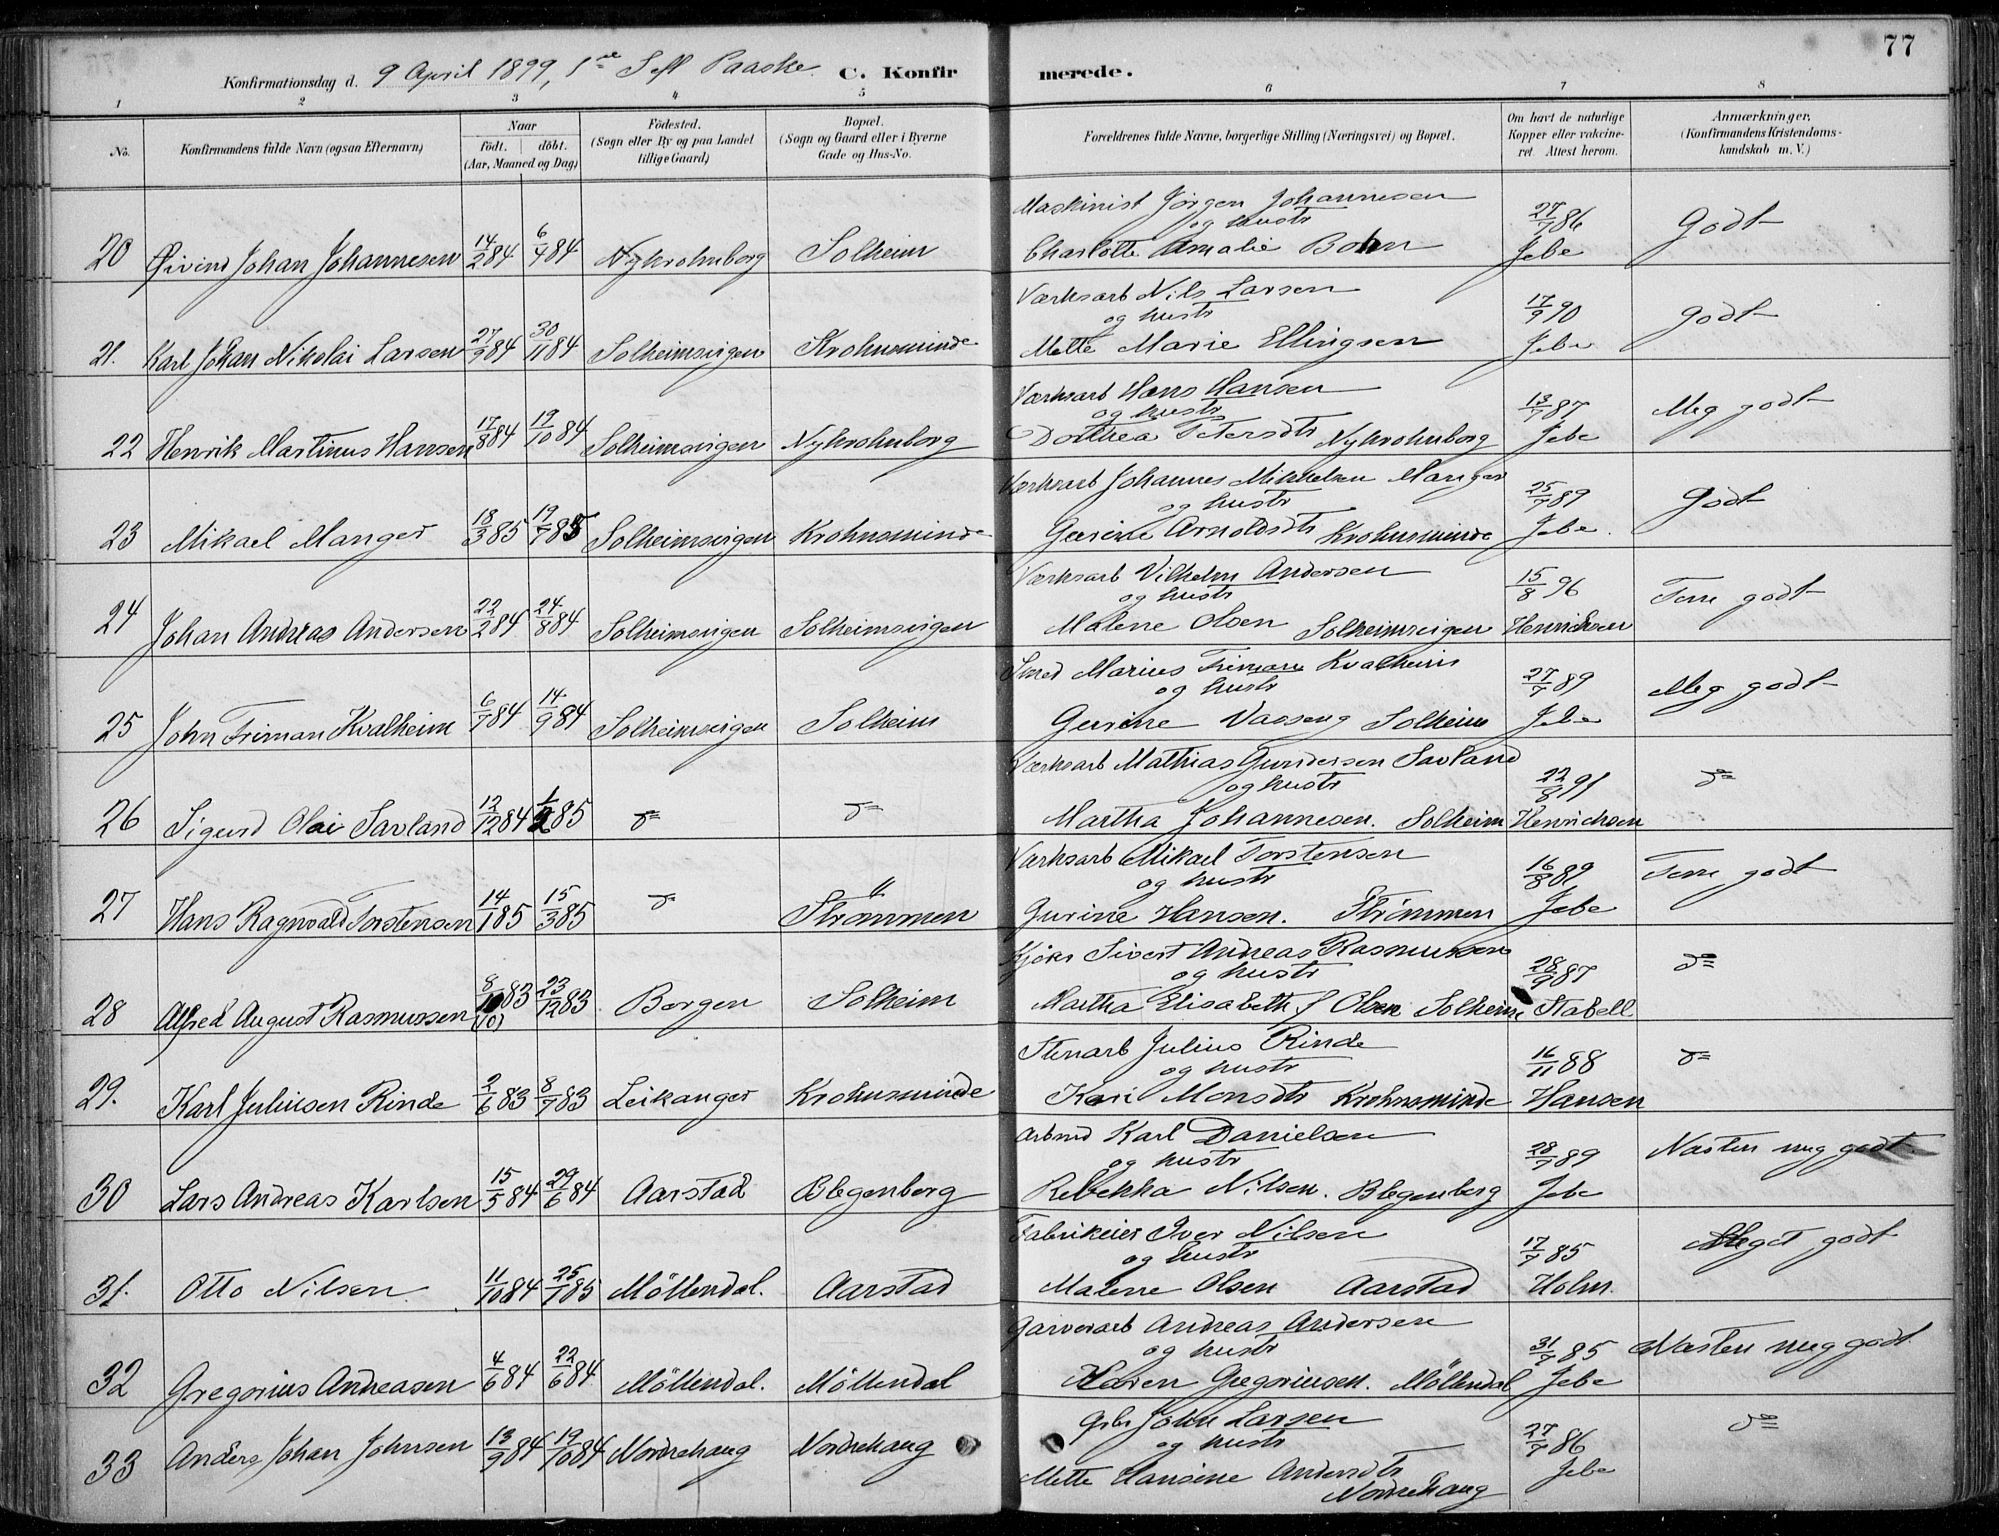 77
Konfirmationsdag d. 9 April 1899, 1ste S. eft. Paaske. C. Konfirmerede.
1 2 3 4 5 6 7 8
No. Konfirmandens fulde Navn (ogsaa Efternavn) Naar födt. döbt. (Aar, Maaned og Dag) Födested. (Sogn eller By og paa Landet tillige Gaard) Bopæl. (Sogn og Gaard eller i Byerne Gade og Hus-No. Forældrenes fulde Navne, borgerlige Stilling (Næringsvei) og Bopæl. Om havt de naturlige Kopper eller vakcineret. Attest herom. Anmærkninger. (Konfirmandens Kristendomskundskab m. V.)
Maskinist Jørgen Johannesen
og hustr
20 Øivind Johan Johannesen 14/2 84 6/4 84 Nykrohnborg Solheim Charlotte Amalie Bohn 27/7 86 Jebe Godt
Værksarb Nils Larsen
og hustr
21. Karl Johan Nikolai Larsen 27/9 84 30/11 84 Solheimsvigen Krohnsminde Mette Marie Ellingsen 17/9 90 Jebe godt
Værksarb Hans Hansen
og hustr
22 Henrik Martinus Hansen 17/8 84 19/10 84 Solheimsvigen Nykrohnborg Dorthea Petersdtr Nykrohnborg 13/7 87 Jebe Meg godt
Værksarb Johannes Mikkelsen Manger
og hustr
23 Mikael Manger 18/3 85 19/7 85 Solheimsvigen Krohnsminde Gurine Arnoldsdtr Krohnsminde 25/7 89 Jebe. Godt
Værksarb Vilhelm Andersen
og hustr
24 Johan Andreas Andersen 22/2 84 24/8 84 Solheimsvigen Solheimsvigen Malene Olsen Solheimsvigen 15/8 96 Henrichsen Temmelig godt
Smed Marius Friman Kvalheim
og hustr
25 John Friman Kvalheim 6/7 84 14/9 84 Solheimsvigen Solheim Gurine Vasseng Solheim 27/7 89 Jebe Meg godt
Værksarb Mathias Gundersen Savland
og hustr
26 Sigurd Olai Savland 12/12 84 1/2 85 do do Martha Johannesen. Solheim 22/8 91 Henrichsen do
Værksarb Mikael Torstensen
og hustr
27 Hans Ragnvald Torstensen 14/1 85 15/3 85 do Strømmen Gurine Hansen. Strømmen 16/8 89 Jebe Temm godt
Sivert Andreas Rasmussen
og hustr
28 Alfred August Rasmussen 8/10 83 (10) 23/12 83 Bergen Solheim Martha Elisabeth f Olsen Solheim 28/9 87 Stabell do
Stenarb Julius Rinde
og hustr
29. Karl Juliusen Rinde 2/6 83 8/7 83 Leikanger Krohnsminde Kari Monsdtr Krohnsminde 16/11 88 Hansen do
Arbmd Karl Danielsen
og hustr
30 Lars Andreas Karlsen 15/5 84 29/6 84 Aarstad Blegenberg Rebekka Nilsen. Blegenberg 28/7 89 Jebe Næsten meg godt
Fabrikeier Iver Nilsen
og hustr
31. Otto Nilsen. 11/10 84 25/1 85 Möllendal. Aarstad Malene Olsen Aarstad 17/7 85 Holm. Meget godt
Garverarb Andreas Andersen
og hustr
32 Gregorius Andreasen 4/6 84 22/6 84 Möllendal. Möllendal Karen Gregoriusen. Möllendal 31/7 85 Jebe Næsten meg godt
Gbr John Larsen
og hustr
33 Anders Johan Johnsen 13/9 84 19/10 84 Nordrehaug Nordrehaug Mette Hansine Andersdtr 27/7 86 Jebe do
Nordrehaug